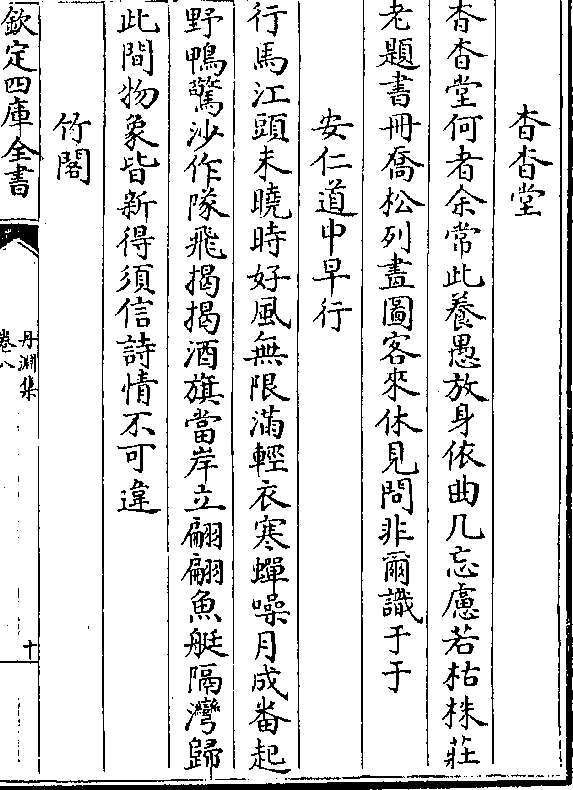 杳杳堂
杳杳堂何者余常此養愚放身依曲几忘慮若枯株莊
老題書冊喬松列畫圖客來休見問非爾識于于
安仁道中早行
行馬江頭未曉時好風無限滿輕衣寒蟬噪月成番起
野鴨驚沙作隊飛揭揭酒旗當岸立翩翩魚艇隔灣歸
此間物象皆新得須信詩情不可違
竹閣
欽定四庫全書
丹淵集
卷八
十